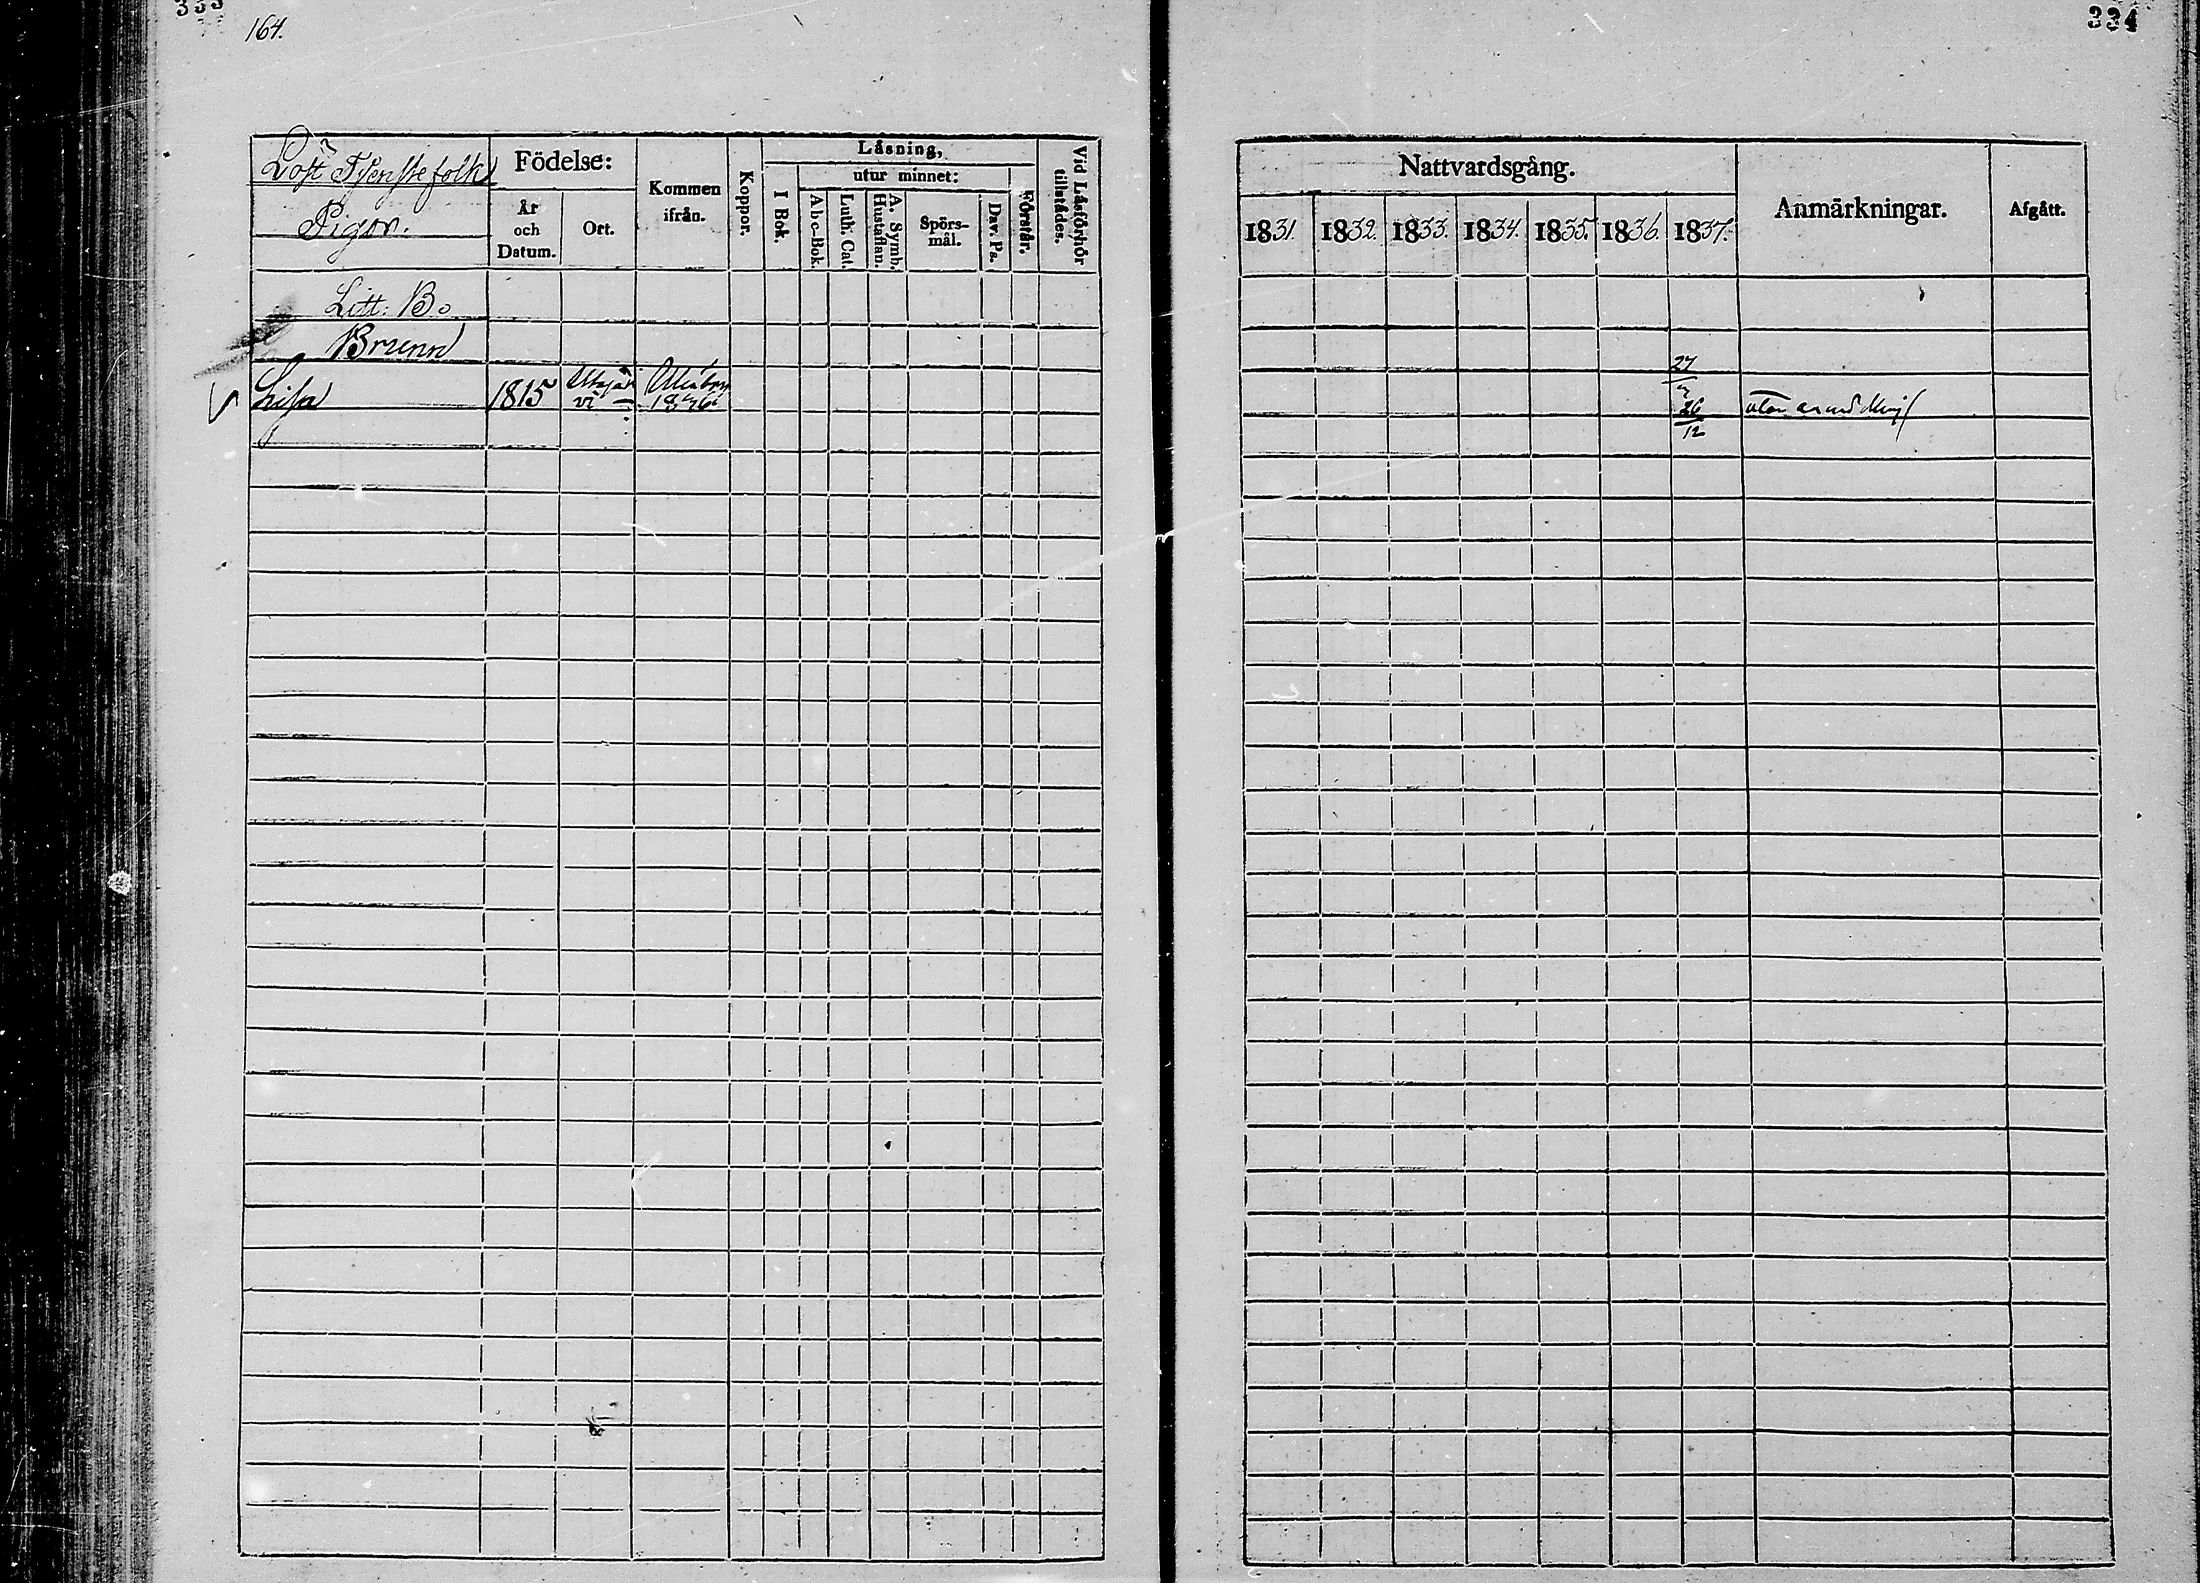 333
164.
334
Löst Tjenstefolk
Pigor.
Födelse:
År
och
Datum.
Ort.
Kommen
ifrån.
Koppor.
Läsning,
I Bok.
utur minnet:
Abc-Bok.
Luth. Cat.
A. Symb.
Hustaflan.
Spörs-
mål.
Dav. Ps.
Förstår.
Vid Läsförhör
tillstädes.
Nattvardsgång.
1831.
1832.
1833.
1834.
1835.
1836.
1837.
Anmärkningar.
Afgått.
Litt: B.
Brunn
Lisa
1815
1836
27
26
12
utan